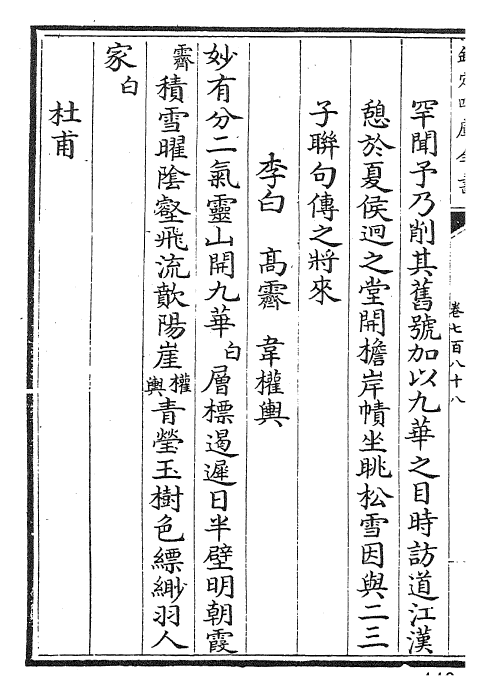 欽定四庫全書
卷七百八十八
罕聞予乃削其舊號加以九華之目時訪道江漢
憩於夏侯迥之堂開檐岸幘坐眺松雪因與二三
子聯句傳之將來
李白　高霽　韋權輿
妙有分二氣靈山開九華白層標遏遲日半壁明朝霞
霽積雪曜陰壑飛流歕陽崖權輿青瑩玉樹色縹緲羽人
家白
杜甫